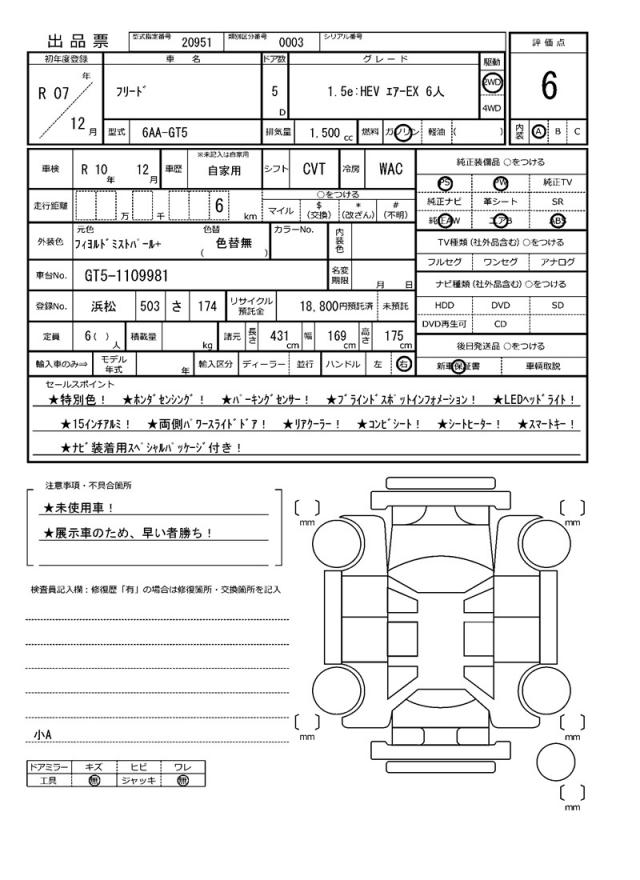 出品票 型式指定番号 20951 類別区分番号 0003 シリアル番号
評価点
6
内装 A B C
初年度登録 車名 ドア数 グレード 駆動
R 07 年 12 月
フリード
5 D
1.5e:HEV エアーEX 6人
2WD
4WD
型式 6AA-GT5 排気量 1.500 cc 燃料 ガソリン 軽油 ( )
車検 R 10 年 12 月 車歴 ※未記入は自家用 自家用 シフト CVT 冷房 WAC
走行距離 万 千 6 km
○をつける
マイル $ (交換) * (改ざん) # (不明)
外装色 元色 フィヨルドミストパール+ 色替 ( 色替無 ) カラーNo. 内装色
車台No. GT5-1109981 名変期限 月 日
登録No. 浜松 503 さ 174 リサイクル預託金 18,800円預託済 未預託
定員 6( )人 積載量 kg 諸元 長さ 431 cm 幅 169 cm 高さ 175 cm
輸入車のみ⇒ モデル年式 年 輸入区分 ディーラー 並行 ハンドル 左 右
純正装備品 ○をつける
PS PW 純正TV
純正ナビ 革シート SR
純正AW エアB ABS
TV種類 (社外品含む) ○をつける
フルセグ ワンセグ アナログ
ナビ種類 (社外品含む) ○をつける
HDD DVD SD
DVD再生可 CD
後日発送品 ○をつける
新車保証書 車輌取説
セールスポイント
★特別色! ★ホンダセンシング! ★パーキングセンサー! ★ブラインドスポットインフォメーション! ★LEDヘッドライト!
★15インチアルミ! ★両側パワースライドドア! ★リアクーラー! ★コンビシート! ★シートヒーター! ★スマートキー!
★ナビ装着用スペシャルパッケージ付き!
注意事項・不具合箇所
★未使用車!
★展示車のため、早い者勝ち!
検査員記入欄：修復歴「有」の場合は修復箇所・交換箇所を記入
小A
ドアミラー キズ ヒビ ワレ
工具 無 ジャッキ 無
mm
mm
mm
mm
mm